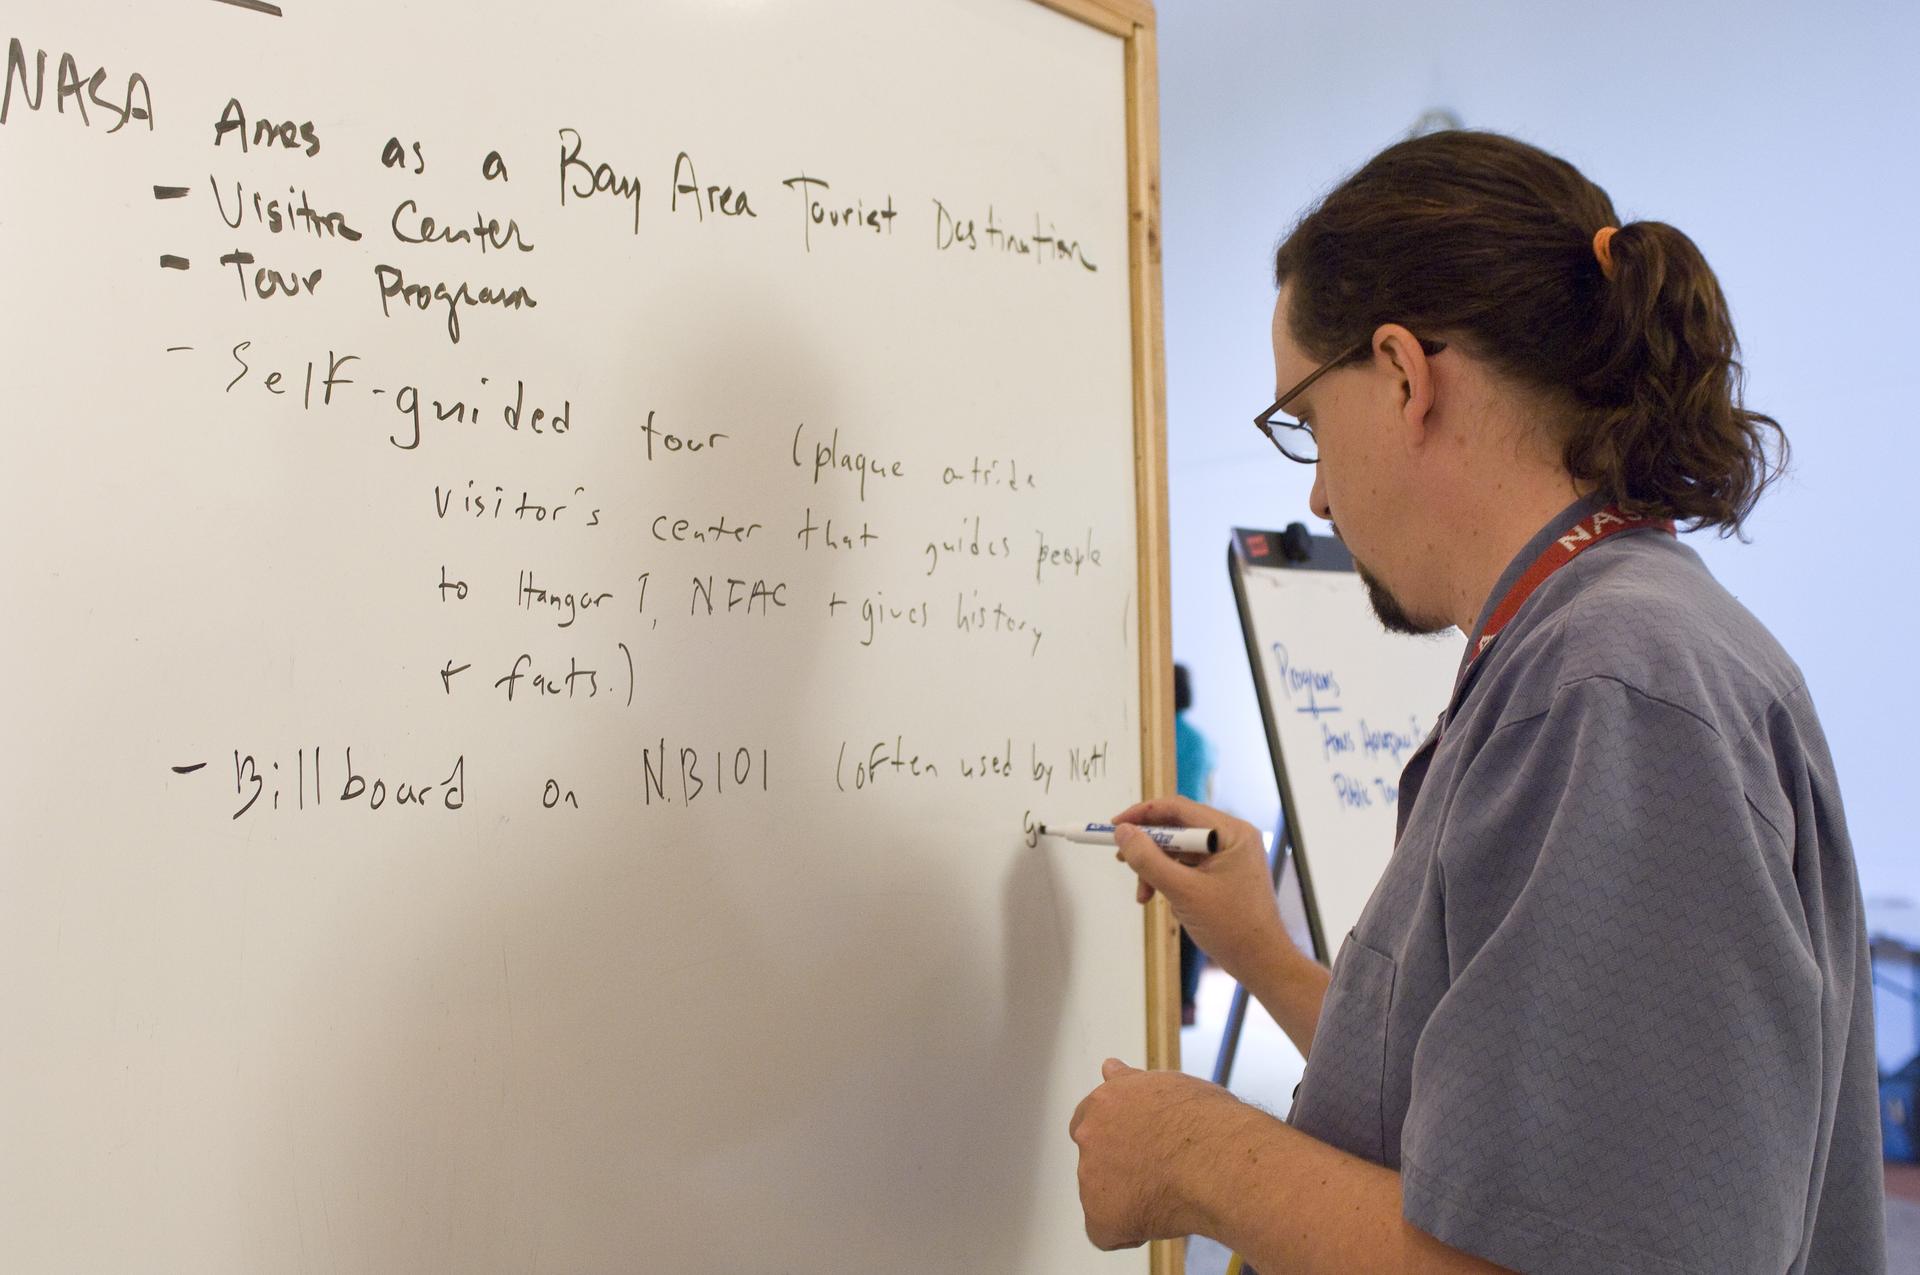 NASA Ames as a Bay Area Tourist Destination
- Visitor Center
- Tour Program
- Self-guided tour (plaque outside
visitor's center that guides people
to Hangar 1, NFAC + gives history
+ facts.)
- Billboard on N.B 101 (often used by Nat'l
G
NAS
Programs
Ames Aerospace E
Public To